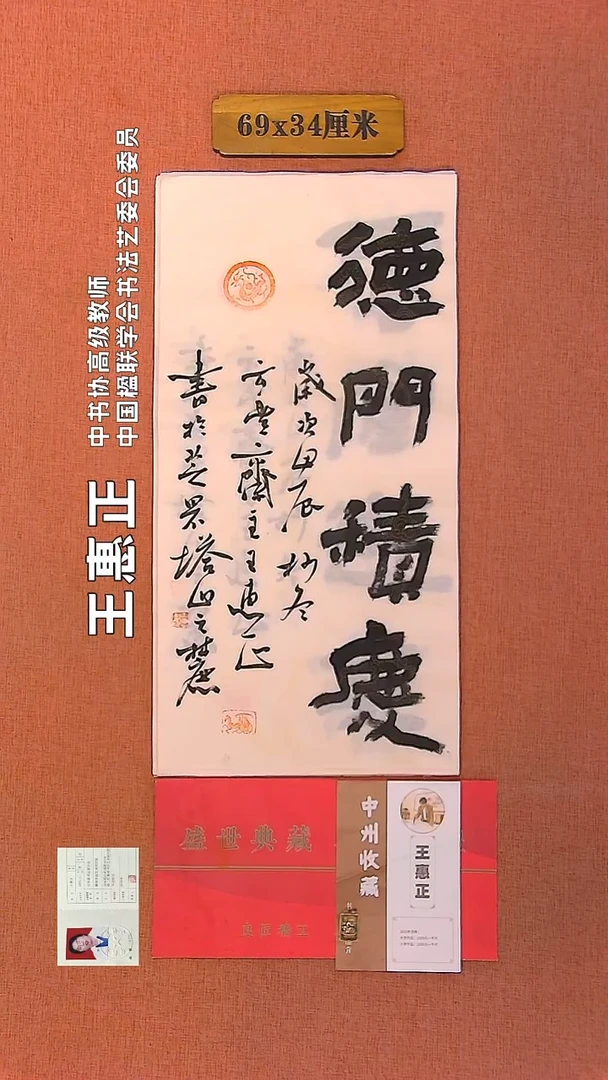 69x34厘米
德門積慶
歲次甲辰初冬
方壺齋主王惠正
書於芝罘塔山之麓
王惠正
中书协高级教师
中国楹联学会书法艺委会委员
盛世典藏
良匠精工
中州收藏
王惠正